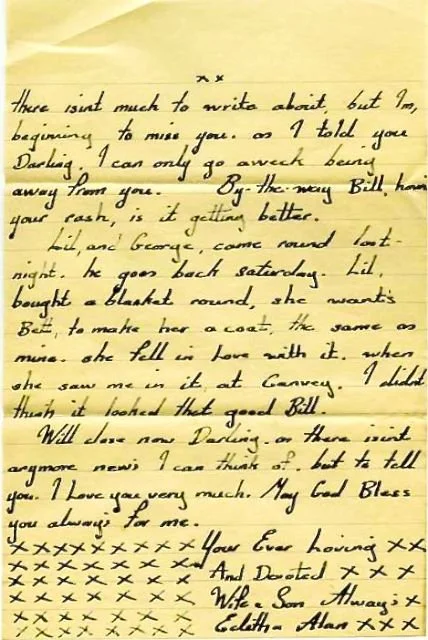 x x
there isint much to write about, but I'm,
beginning to miss you. as I told you
Darling, I can only go aweek being
away from you. By-the-way Bill, how
your rash, is it getting better.
Lil, and George, came round last-
night. he goes back saturday. Lil,
bought a blanket round, she want's
Bett, to make her a coat, the same as
mine. she fell in Love with it. when
she saw me in it, at Canvey. I didnt
think it looked that good Bill.
Will close now Darling. as there isint
anymore news I can think of. but to tell
you. I Love you very much. May God Bless
you always for me.
x x x x x x x x x x Your Ever Loving x x
x x x x x x x x x x And Devoted x x x
x x x x x x x x x Wife & Son Always x
x x x x x x x x x Edith & Alan x x x